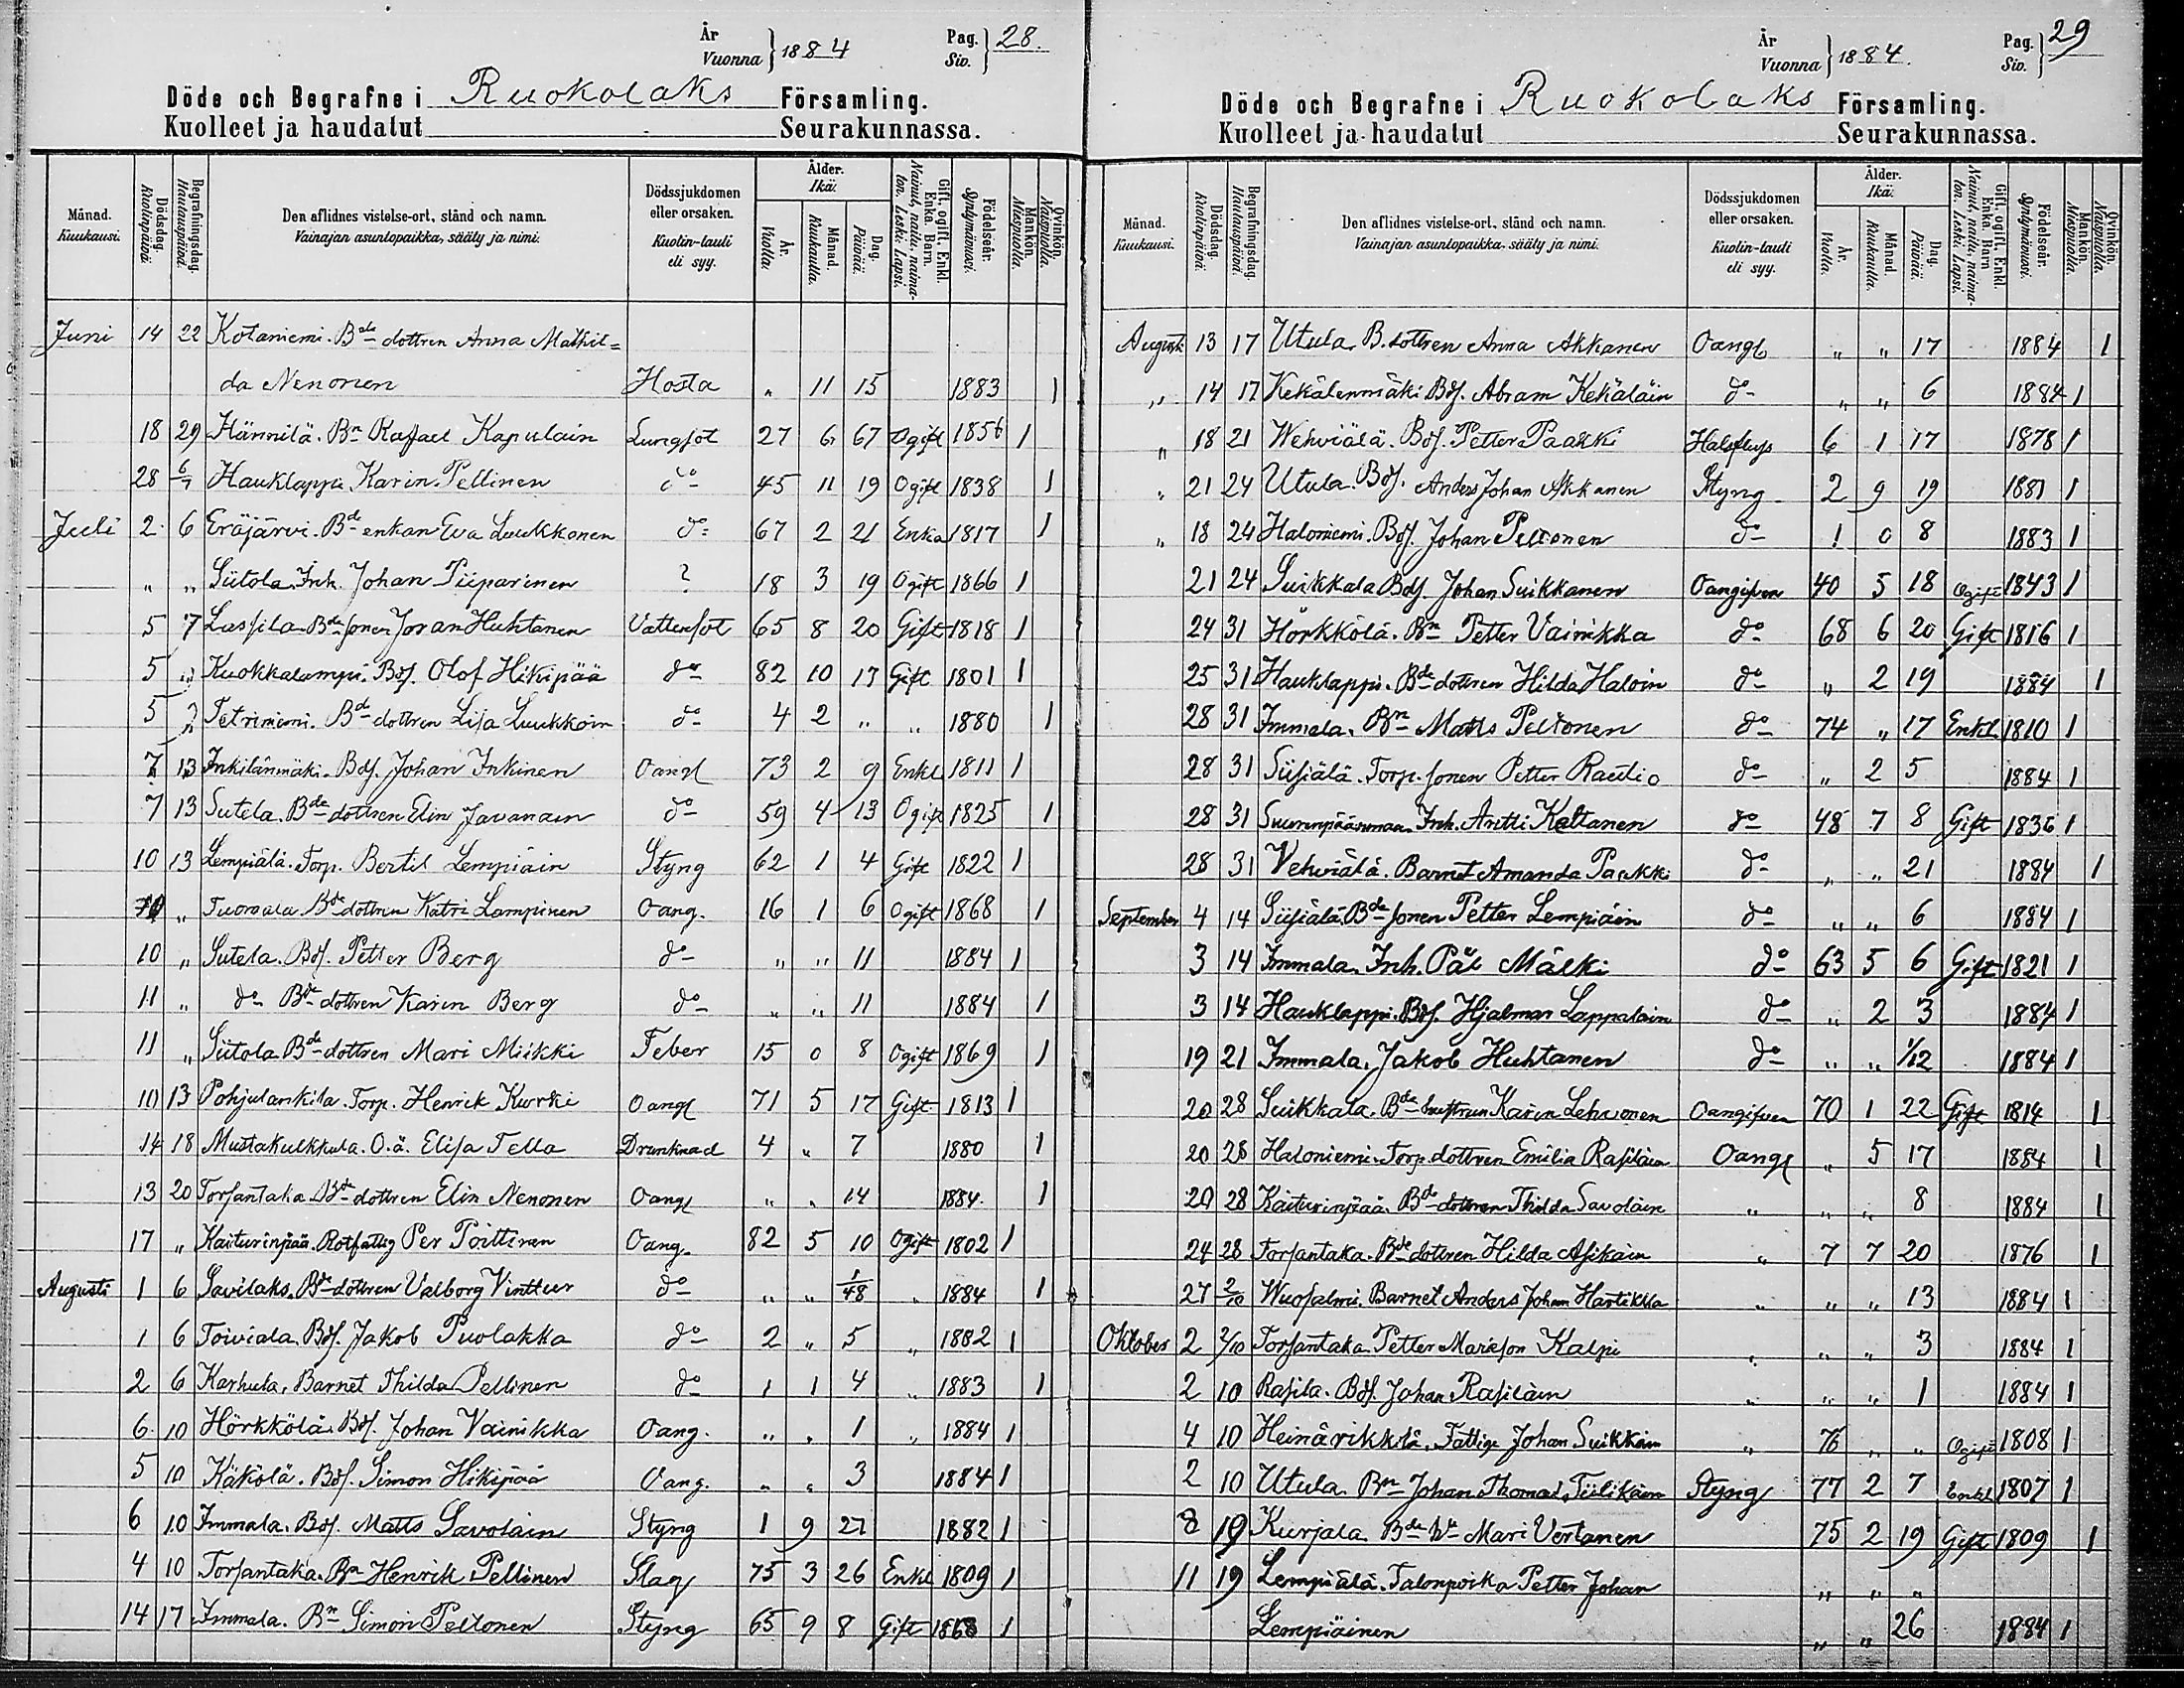 År
Vuonna } 1884
Pag.
Siv. } 28.
Döde och Begrafne i Ruokolaks Församling.
Kuolleet ja haudatut Seurakunnassa.
Månad.
Kuukausi.
Dödsdag.
Kuolinpäivä.
Begrafningsdag.
Hautauspäivä.
Den aflidnes vistelse-ort, stånd och namn.
Vainajan asuntopaikka, sääty ja nimi.
Dödssjukdomen
eller orsaken.
Kuolin-tauti
eli syy.
Ålder.
Ikä.
År.
Vuotta.
Månad.
Kuukautta.
Dag.
Päivää.
Gift, ogift, Enkl.
Enka. Barn.
Nainut, naitu, naima-
ton. Leski. Lapsi.
Födelseår.
Syntymävuosi.
Mankön.
Miespuolla.
Qvinkön.
Naispuolla.
Juni 14 22 Kotaniemi. Bde dottren Anna Mathil=
da Nenonen Hosta " 11 15 1883 1
18 29 Hännilä. Bn Raffael Kapulain Lungsot 27 6 67 Ogift 1856 1
28 6/7 Hauklappi Karin Pellinen do 45 11 19 Ogift 1838 1
Juli 2 6 Eräjärvi. Bde enkan Eva Luukkonen do 67 2 21 Enka 1817 1
" " Siitola. Inh. Johan Piiparinen ? 18 3 19 Ogift 1866 1
5 7 Lassila Bde sonen Joran Huhtanen Vattensot 65 8 20 Gift 1818 1
5 " Kuokkalampi. Bds. Olof Hikipää do 82 10 13 Gift 1801 1
5 " Tetriniemi. Bde dottren Lisa Luukkoin do 4 2 " " 1880 1
7 13 Inkilänmäki. Bds. Johan Inkinen Oangf 73 2 9 Enkl 1811 1
7 13 Sutela. Bde dottren Elin Javanain do 59 4 13 Ogift 1825 1
10 13 Lempiälä. Torp. Bertil Lempiäin Styng 62 1 4 Gift 1822 1
" Tuomala Bde dottren Katri Lampinen Oang. 16 1 6 Ogift 1868 1
10 " Sutela. Bds. Petter Berg do " " 11 1884 1
11 " do Bde dottren Karin Berg do " " 11 1884 1
11 " Siitola Bde dottren Mari Miikki Feber 15 0 8 Ogift 1869 1
10 13 Pohjalankila. Torp. Henrik Kurki Oangf 71 5 17 Gift 1813 1
14 18 Mustakulkkula. O.ä. Elisa Tella Drunknad 4 " 7 1880 1
13 20 Torsantaka Bde dottren Elin Nenonen Oangf " " 14 1884. 1
17 " Kaiturinpää. Rotfattig Per Pöittinen Oang. 82 5 10 Ogift 1802 1
Augusti 1 6 Savilaks. Bde dottren Valborg Vinttur do " " 1/48 " 1884 1
1 6 Toiviala. Bds. Jakob Puolakka do 2 " 5 " 1882 1
2 6 Karhula. Barnet Thilda Pellinen do 1 1 4 " 1883 1
6. 10 Hörkkölä. Bds. Johan Vainikka Oang. " " 1 " 1884 1
5 10 Käkölä. Bds. Simon Hikipää Oang. " " 3 1884 1
6 10 Immala. Bds. Matts Savolain Styng 1 9 27 1882 1
4 10 Torsantaka. Bn Henrik Pellinen Slag 75 3 26 Enkl 1809 1
14 17 Immala. Bn Simon Peltonen Styng 65 9 8 Gift 1
År
Vuonna } 1884.
Pag.
Siv. } 29
Döde och Begrafne i Ruokolaks Församling.
Kuolleet ja haudatut Seurakunnassa.
Månad.
Kuukausi.
Dödsdag.
Kuolinpäivä.
Begrafningsdag.
Hautauspäivä.
Den aflidnes vistelse-ort, stånd och namn.
Vainajan asuntopaikka, sääty ja nimi.
Dödssjukdomen
eller orsaken.
Kuolin-tauti
eli syy.
Ålder.
Ikä.
År.
Vuotta.
Månad.
Kuukautta.
Dag.
Päivää.
Gift, ogift, Enkl.
Enka. Barn
Nainut, naitu, naima-
ton. Leski. Lapsi.
Födelseår.
Syntymävuosi.
Mankön.
Miespuolla.
Qvinkön.
Naispuolla.
Augusti 13 17 Utula. B. dottren Anna Akkanen Oangf " " 17 1884 1
" 14 17 Kekälenmäki Bds. Abram Kekäläin do " " 6 1884 1
" 18 21 Wehviälä. Bds. Petter Paakki Halsfluss 6 1 17 1878 1
" 21 24 Utula. Bds. Anders Johan Akkanen Styng 2 9 19 1881 1
" 18 24 Haloniemi. Bds. Johan Peltonen do 1 0 8 1883 1
21 24 Suikkala Bds. Johan Suikkanen Oangifven 40 5 18 Ogift 1843 1
24 31 Hörkkölä. Bn Petter Vainikka do 68 6 20 Gift 1816 1
25 31 Hauklappi. Bde dottren Hilda Haloin do " 2 19 1884 1
28 31 Immala. Bn Matts Peltonen do 74 " 17 Enkl. 1810 1
28 31 Siisiälä. Torp. sonen Petter Rautio do " 2 5 1884 1
28 31 Suurenpäänmaa. Inh. Antti Kaltanen do 48 7 8 Gift 1836 1
28 31 Vehviälä. Barnet Amanda Paakki do " " 21 1884 1
September 4 14 Siisiälä. Bde sonen Petter Lempiäin do " " 6 1884 1
3 14 Immala. Inh. Pål Mälki do 63 5 6 Gift 1821 1
3 14 Hauklappi. Bds. Hjalmar Lappalain do " 2 3 1884 1
19 21 Immala, Jakob Huhtanen do " " 1/12 1884 1
20 28 Suikkala. Bde hustrun Karin Lehvonen Oangifven 70 1 22 Gift 1814 1
20 28 Haloniemi. Torp. dottren Emilia Rasiläin Oangf " 5 17 1884 1
20 28 Kaiturinpää. Bde dottren Thilda Savolain " " " 8 1884 1
24 28 Torsantaka. Bde dottren Hilda Asikain " 7 7 20 1876 1
27 2/10 Wuosalmi. Barnet Anders Johan Hartikka " " " 13 1884 1
Oktober 2 2/10 Torsantaka Petter Mariason Kalpi " " " 3 1884 1
2 10 Rasila. Bds. Johan Rasiläin " " " 1 1884 1
4 10 Heinärikkilä. Fattige Johan Suikkain " 76 " " Ogift 1808 1
2 10 Utula. Bn Johan Thomas. Tiilikäin Styng 77 2 7 Enkl 1807 1
8 19 Kurjala Bde h. Mari Vertanen 75 2 19 Gift 1809 1
11 19 Lempiälä. Talonpoika Petter Johan " " "
Lempiäinen " " 26 1884 1